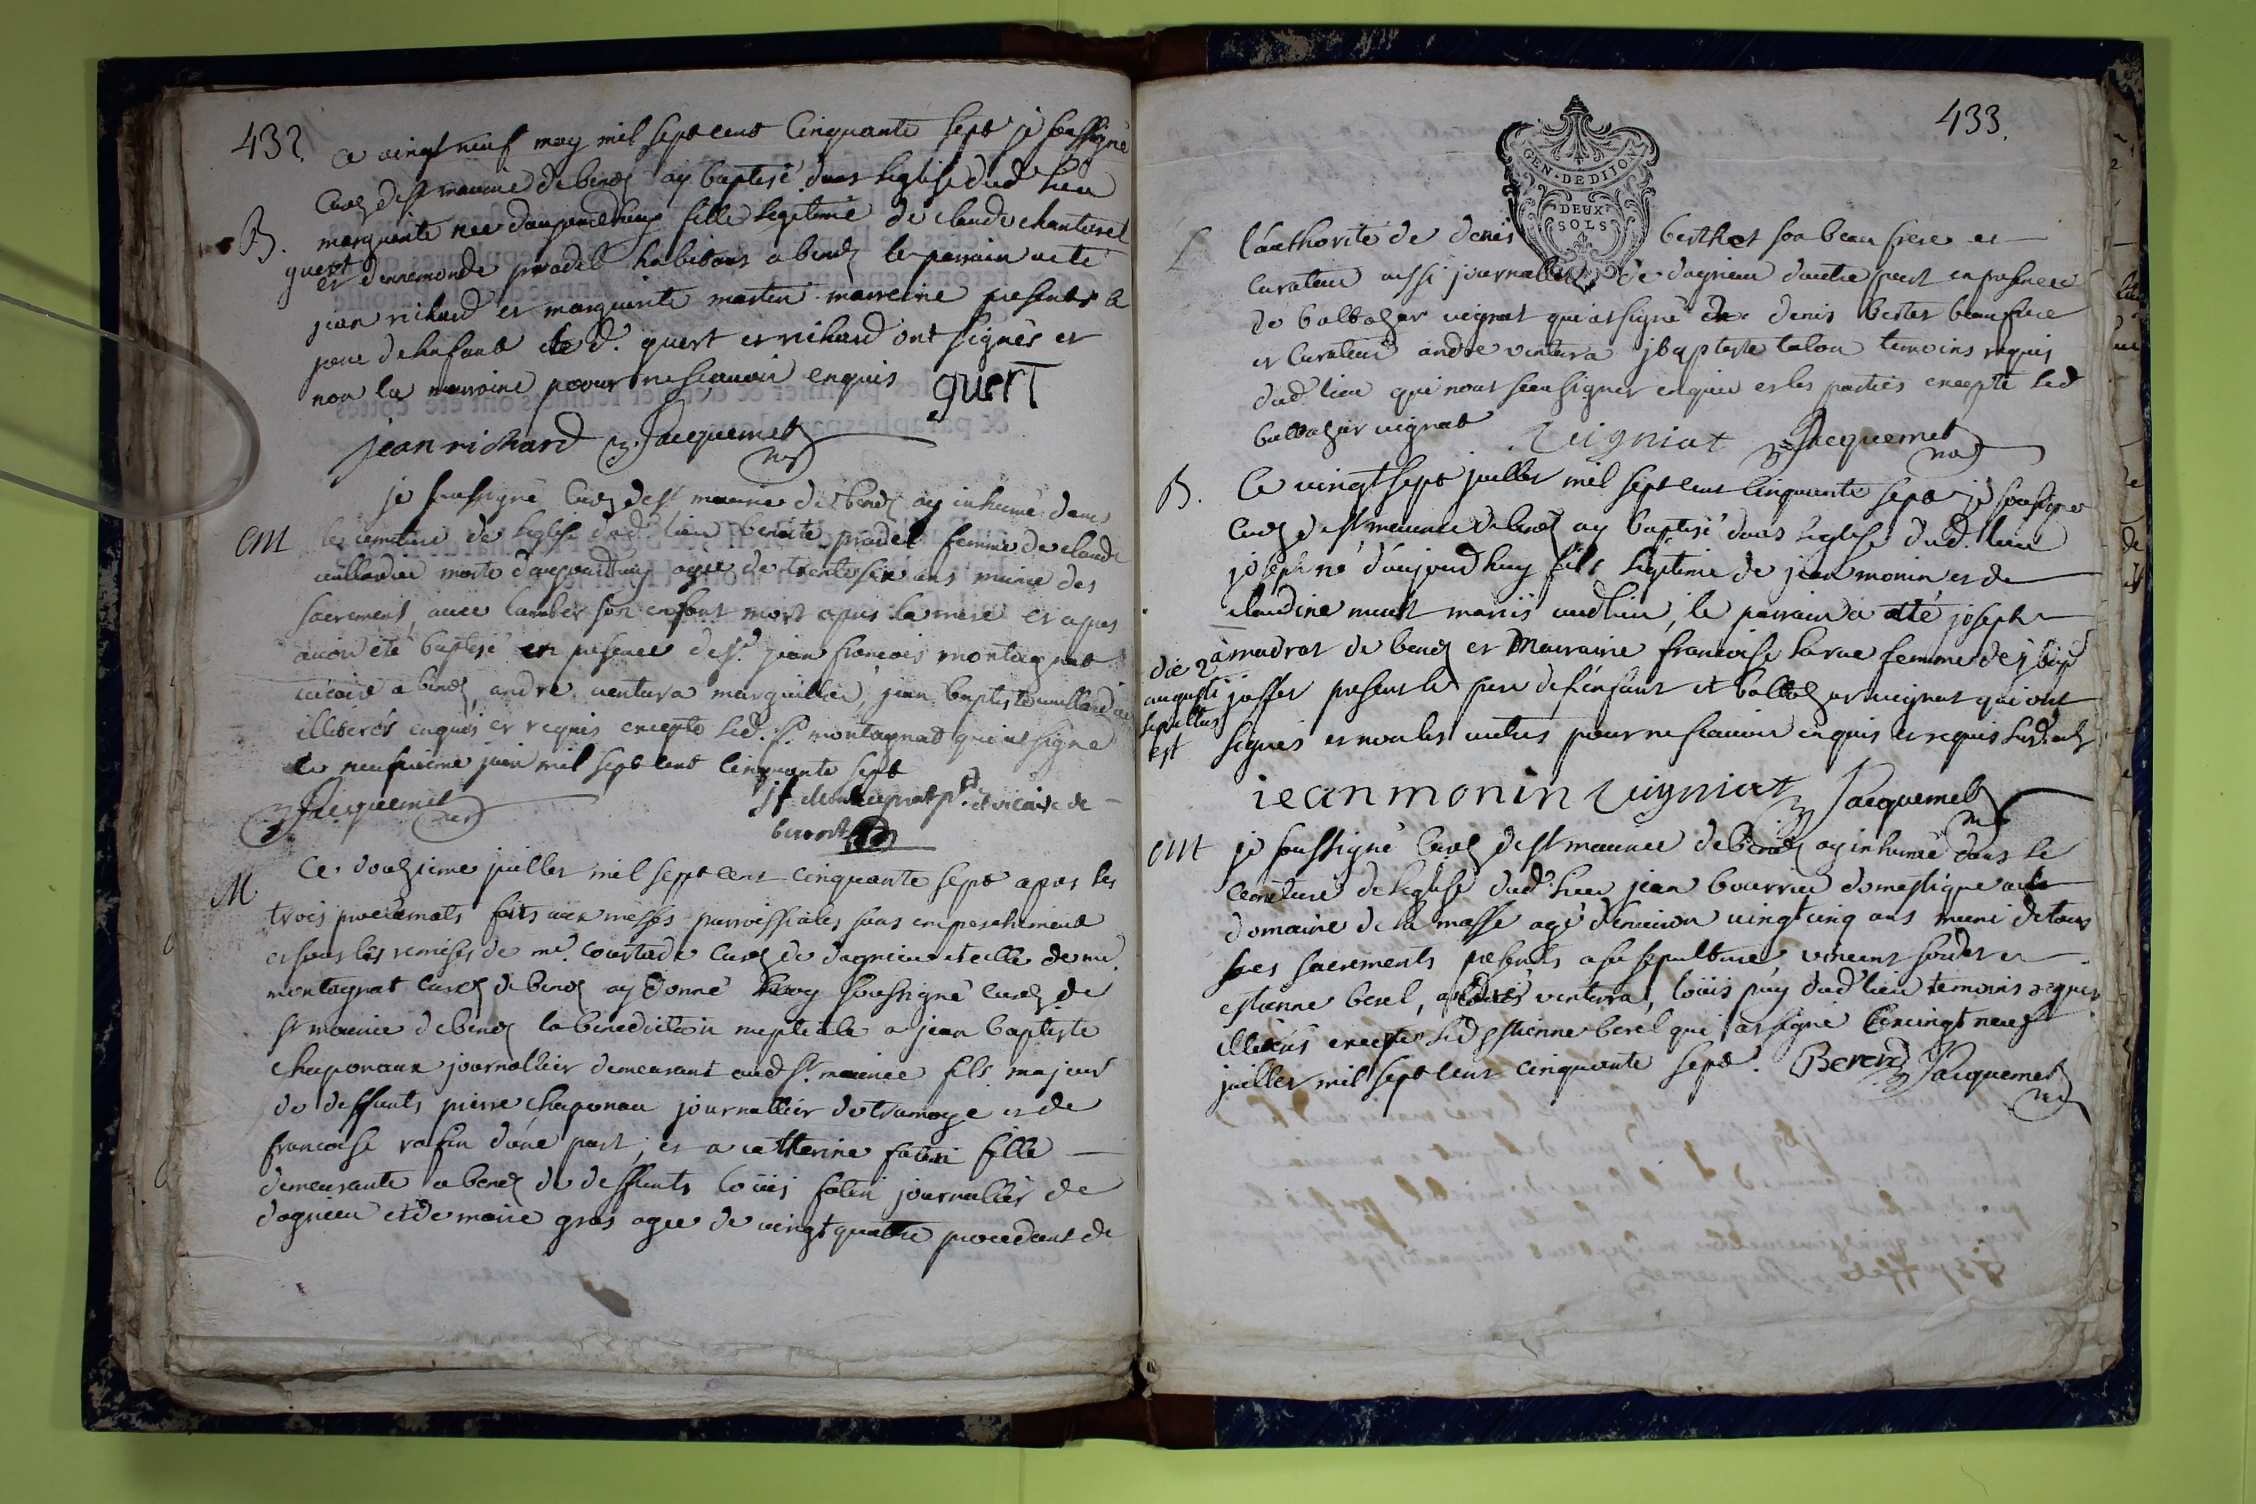 432.
Ce vingt neuf may mil sept cent Cinquante sept je soussigné
Curé de st maurice de beinos ay baptisé dans leglise dud lieu
B. marguerite née daujourdhuy fille legitime de claude chanteret
guert et denremonde pradel habitans a beinos le parrain a eté
jean richard et marguerite martin marreine presents le
pere de lenfant led. guert et richard ont signés et
non la marreine pour ne scavoir enquis guert
jean richard Jacquemet
je soussigné Curé de st maurice de beinos ay inhumé dans
ent le cemetiere de leglise dud. lieu benoite pradel femme de claude
morte daujourdhuy agee de trente six ans munie des
sacrements, avec lambert son enfant mort apres la mere et apres
avoir eté baptisé en presence de sr. jean francois montagnat
vicaire a beinos, andré ventura marguillier, jean baptiste
illiterés enquis et requis excepté led. sr. montagnat qui a signé
le neufvieme juin mil sept cent cinquante sept
Jacquemet jf Montagnat ptre et vicaire de
M Ce douzieme juillet mil sept cent cinquante sept apres les
trois proclamats faits aux messes parroissiales sans empeschement
et sous les remises de mr. courtade curé de dagnieu et celle de mr.
montagnat curé de beinos ay donné soussigné curé de
st maurice de beinos la benediction nuptiale a jean baptiste
chaponaux journallier demeurant aud st. maurice fils majeur
de deffunts pierre chaponau journallier de tramoye et de
francoise rafin d'une part, et a catherine fatin fille
demeurante a beinos de deffunts loüis fatin journallier de
dagnieu et de marie gros agee de vingt quatre procedant de
433.
GEN·DE DIJON
DEUX
SOLS
l'authorité de denis berthet son beau frere et
curateur aussi journallier de dagnieu dautre part en presence
de baltazar vignat qui a signé de denis bertet beau frere
et curateur andré ventura jbaptiste talon temoins requis
dud. lieu qui nont sceu signer enquis et les parties excepté led
baltazar vignat vigniat Jacquemet
B. Ce vingt sept juillet mil sept cent cinquante sept je soussigné
Curé de st maurice de beinos ay baptisé dans leglise dud. lieu
joseph né d'aujourdhuy fils legitime de jean monin et de
claudine mariés aud lieu, le parrain a eté joseph
amadrat de beinos et Marraine francoise larue femme de j bapt
die 2a
augusti
sepultus
est
josser present le pere de l'enfant et baltazar vignat qui ont
signés et non les autres pour ne scavoir enquis et requis
jean monin vigniat Jacquemet
ent je soussigné Curé de st maurice de beinos ay inhumé dans le
cemetiere de leglise dud. lieu jean bourrier domestique au
domaine de la masse agé d'environ vingt cinq ans muni de tous
ses sacrements presents a sa sepulture vincent soudet et
estienne berel, andré ventura, loüis puy dud. lieu temoins requis
illiterés excepté led estienne berel qui a signé ce vingt neuf
juillet mil sept cent cinquante sept. Berel Jacquemet